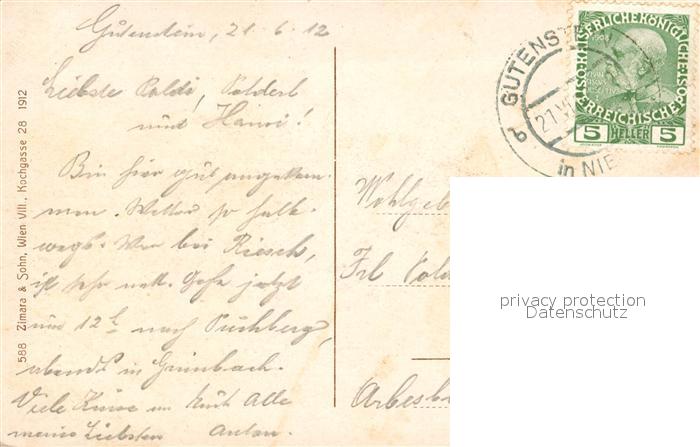 Gutenstein, 21.6.12
Liebste Poldi, Polderl
und Hansi!
Bin hier gut angekom-
men. Wetter so halb-
wegs. War bei Riesch,
ist sehr nett. Gehe jetzt
um 12h nach Puchberg,
abends in Grünbach.
Viele Küsse an Euch Alle
meine Liebsten Anton.
588 Zimara & Sohn, Wien VIII., Kochgasse 28 1912
GUTENST
21.VI
in NIE
KAISERLICHE KÖNIGLICHE
ÖSTERREICHISCHE POST
1908
5 HELLER 5
Wohlgeb
Frl Pold
Arbesb
privacy protection
Datenschutz